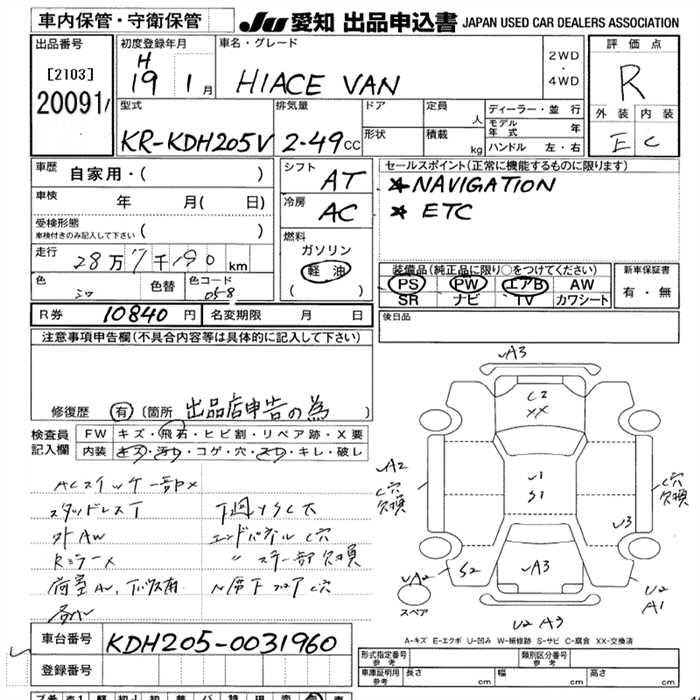 車内保管・守衛保管
JU 愛知 出品申込書 JAPAN USED CAR DEALERS ASSOCIATION
出品番号
[2103]
20091
初度登録年月
H
19 1 月
車名・グレード
HIACE VAN
2WD
・
4WD
評価点
R
外装 内装
E C
型式
KR-KDH205V
排気量
2-49 CC
ドア
形状
定員
人
積載
kg
ディーラー・並行
モデル年式 年
ハンドル 左・右
車歴
自家用・( )
車検
年 月( 日)
受検形態
車検付きのみ記入して下さい ( )
走行
28万7千190 km
色
シロ
色替
色コード
058
シフト
AT
冷房
AC
燃料
ガソリン
軽油
( )
セールスポイント(正常に機能するものに限ります)
★NAVIGATION
★ ETC
装備品(純正品に限り○をつけてください)
PS PW エアB AW
SR ナビ TV カワシート
新車保証書
有・無
R券 10840 円
名変期限 月 日
後日品
注意事項申告欄(不具合内容等は具体的に記入して下さい)
修復歴 有(箇所 出品店申告の為 )
検査員
記入欄
FW キズ・飛石・ヒビ割・リペア跡・X要
内装 キズ・汚れ・コゲ・穴・スレ・キレ・破レ
ACスイッチ一部X
スタッドレスT
外AW
RミラーX
下回りSC大
エンドパネルC穴
〃 ステー部欠損
A3
C2
XX
A2
C穴
欠損
U1
S1
C穴
欠損
U3
A3
S2
UA2
スペア
U2
A1
U2 A3
A-キズ E-エクボ U-凹み W-補修跡 S-サビ C-腐食 XX-交換済
車台番号 KDH205-0031960
登録番号
形式指定番号
参考
類別区分番号
参考
車庫証明用
参考
長さ cm 幅 cm 高さ cm